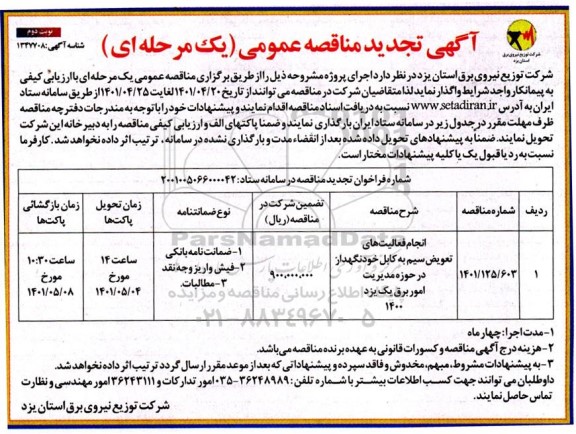 نوبت دوم
شناسه آگهی: ۱۳۴۷۷۰۸
آگهی تجدید مناقصه عمومی (یک مرحله ای)
شرکت توزیع نیروی برق
استان یزد
شرکت توزیع نیروی برق استان یزد در نظر دارد اجرای پروژه مشروحه ذیل را از طریق برگزاری مناقصه عمومی یک مرحله ای با ارزیابی کیفی
به پیمانکار واجد شرایط واگذار نماید لذا متقاضیان شرکت در مناقصه می توانند از تاریخ ۱۴۰۱/۰۴/۲۰ لغایت ۱۴۰۱/۰۴/۲۵ از طریق سامانه ستاد
ایران به آدرس www.setadiran.ir نسبت به دریافت اسناد مناقصه اقدام نمایند و پیشنهادات خود را با توجه به مندرجات دفترچه مناقصه
ظرف مهلت مقرر در جدول زیر در سامانه ستاد ایران بارگذاری نمایند و ضمنا پاکتهای الف و ارزیابی کیفی مناقصه را به دبیرخانه این شرکت
تحویل نمایند. ضمنا به پیشنهادهای تحویل داده شده بعد از انقضاء مدت و بارگذاری نشده در سامانه ، ترتیب اثر داده نخواهد شد. کارفرما
نسبت به رد یا قبول یک یا کلیه پیشنهادات مختار است.
شماره فراخوان تجدید مناقصه در سامانه ستاد: ۲۰۰۱۰۰۵۰۶۶۰۰۰۰۴۲
ردیف شماره مناقصه شرح مناقصه تضمین شرکت در مناقصه (ریال) نوع ضمانتنامه زمان تحویل پاکت‌ها زمان بازگشائی پاکت‌ها
۱ ۱۴۰۱/۱۲۵/۶۰۳ انجام فعالیت های تعویض سیم به کابل خودنگهدار در حوزه مدیریت امور برق یک یزد ۱۴۰۰ ۹۰۰,۰۰۰,۰۰۰ ۱-ضمانت نامه بانکی ۲-فیش واریز وجه نقد ۳-مطالبات. ساعت ۱۴ مورخ ۱۴۰۱/۰۵/۰۴ ساعت ۱۰:۳۰ مورخ ۱۴۰۱/۰۵/۰۸
ParsNamadData
۰۲۱-۸۸۳۴۹۶۷۰-۵
۱-مدت اجرا: چهار ماه
۲-هزینه درج آگهی مناقصه و کسورات قانونی به عهده برنده مناقصه می‌باشد.
۳-به پیشنهادات مشروط، مبهم، مخدوش و فاقد سپرده و پیشنهاداتی که بعد از موعد مقرر ارسال گردد ترتیب اثر داده نخواهد شد.
داوطلبان می توانند جهت کسب اطلاعات بیشتر با شماره تلفن : ۳۶۲۴۸۹۸۹-۰۳۵ امور تدارکات و ۳۶۲۴۳۱۱۱ امور مهندسی و نظارت
تماس حاصل نمایند.
شرکت توزیع نیروی برق استان یزد